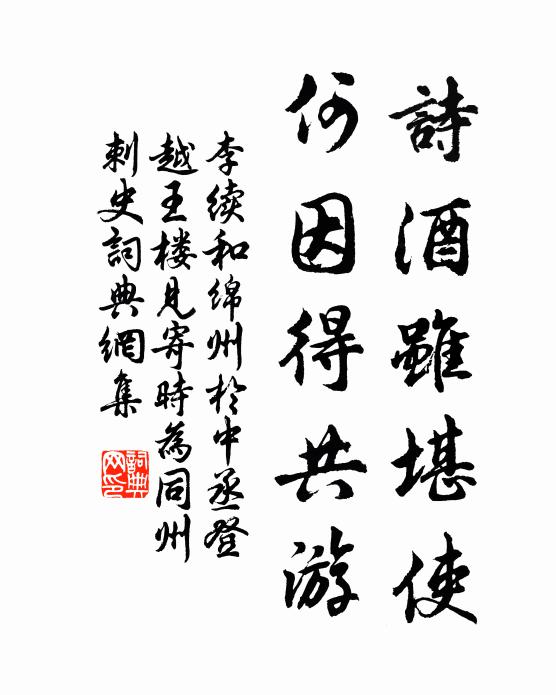 詩酒雖堪使
何因得共游
李续和绵州於中丞登
越王楼见寄時為同州
刺史詞典網集
詞典
网印